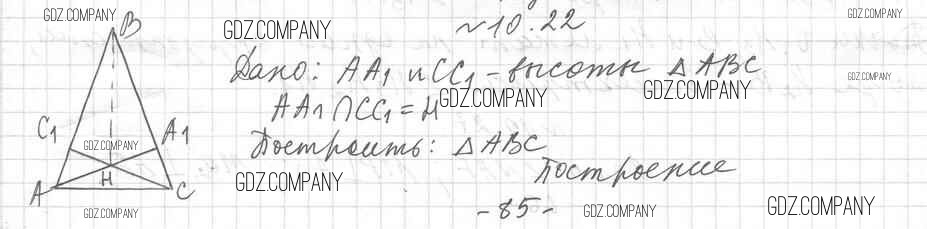 GDZ.COMPANY
B
GDZ.COMPANY
~10.22
GDZ.COMPANY
Дано: AA1 и CC1 - высоты △ABC
GDZ.COMPANY
AA1 ∩ CC1 = H
GDZ.COMPANY
GDZ.COMPANY
C1
A1
GDZ.COMPANY
Построить: △ABC
Построение
A
H
C
GDZ.COMPANY
- 85 -
GDZ.COMPANY
GDZ.COMPANY
GDZ.COMPANY